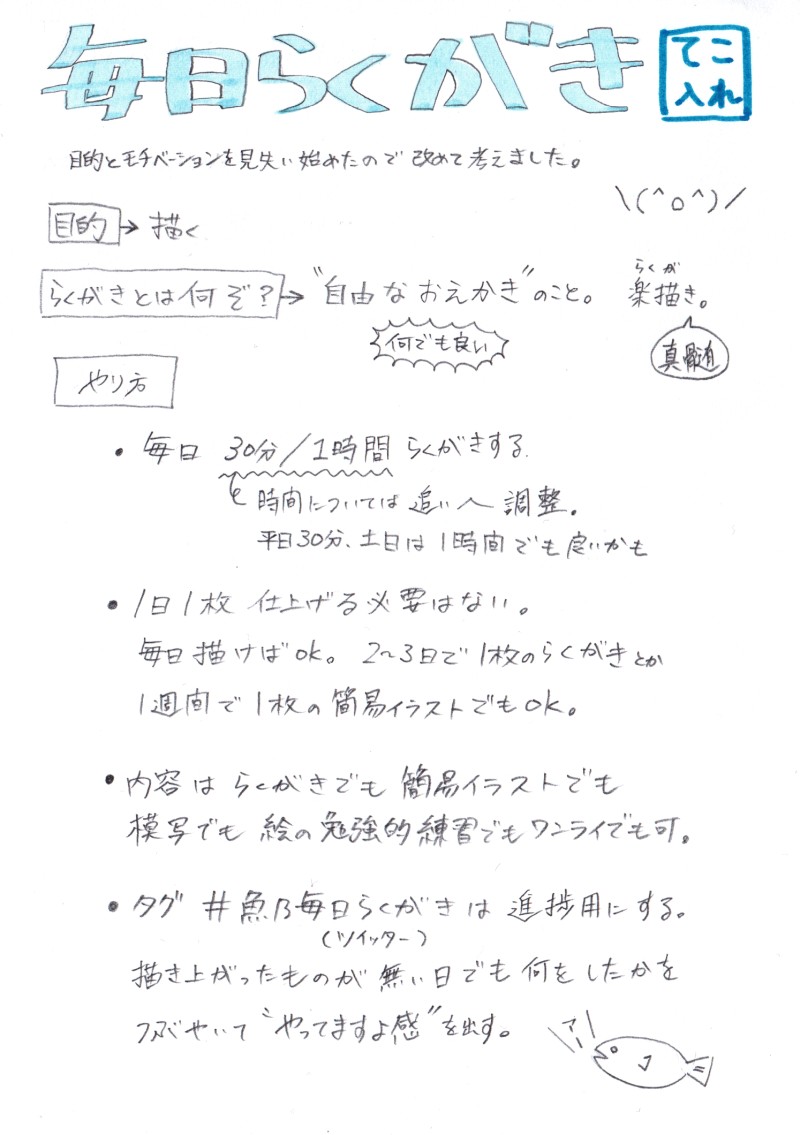 毎日らくがき
てこ
入れ
目的とモチベーションを見失い始めたので改めて考えました。
\(^o^)/
目的→描く
らくがきとは何ぞ?→"自由なおえかき"のこと。
らくが
楽描き。
何でも良い
真髄
やり方
・毎日 30分/1時間 らくがきする.
時間については追い人調整。
平日30分、土日は1時間でも良いかも
・1日1枚 仕上げる必要はない。
毎日描けばok。2~3日で1枚のらくがきとか
1週間で1枚の簡易イラストでもok。
・内容は らくがきでも 簡易イラストでも
模写でも 絵の勉強的練習でもワンライでも可。
・タグ #魚乃毎日らくがき は 進捗用にする。
(ツイッター)
描き上がったものが 無い日でも 何をしたかを
つぶやいて"やってますよ感"を出す。
アー